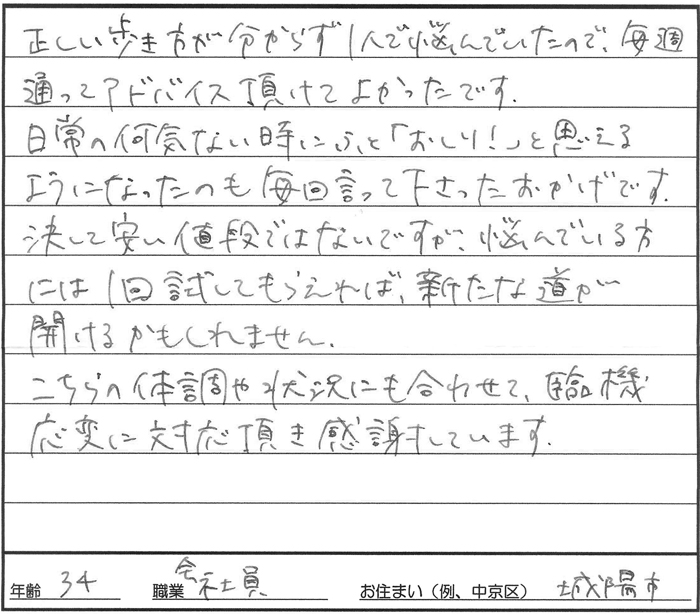 正しい歩き方が分からず1人で悩んでいたので、毎週
通ってアドバイス頂けてよかったです.
日常の何気ない時にふと「おしり!」と思える
ようになったのも毎回言って下さったおかげです.
決して安い値段ではないですが、悩んでいる方
には1回試してもらえれば、新たな道が
開けるかもしれません.
こちらの体調や状況にも合わせて、臨機
応変に対応頂き感謝しています.
年齢 34 職業 会社員 お住まい（例、中京区） 城陽市